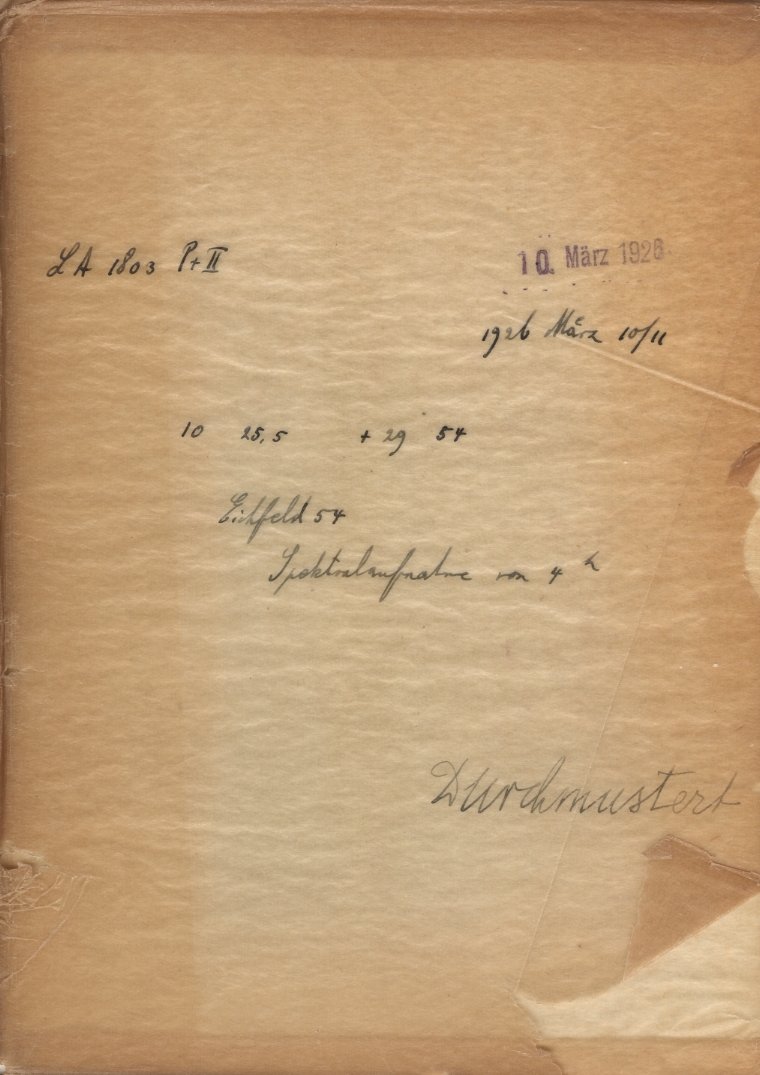 LA 1803 P+II
10. März 1926
1926 März 10/11
10 25,5 + 29 54
Eichfeld 54
Spektralaufnahme von 4 h
Durchmustert